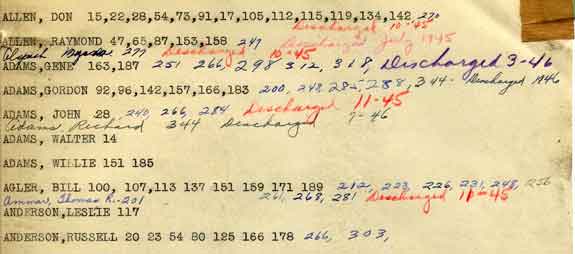 ALLEN, DON 15,22,28,54,73,91,17,105,112,115,119,134,142 270
Discharged 10-45
ALLEN, RAYMOND 47,65,87,153,158 247 Discharged July 1945
277 Discharged 10-45
ADAMS,GENE 163,187 251 266, 298 312, 318, Discharged 3-46
ADAMS,GORDON 92,96,142,157,166,183 200, 248, 282, 288, 344- Discharged 1946
ADAMS, JOHN 28 240, 266, 284 Discharged 11-45
Adams Richard 344 Discharged 7-46
ADAMS, WALTER 14
ADAMS, WILLIE 151 185
AGLER, BILL 100, 107,113 137 151 159 171 189 212, 223, 226, 231, 248, 256
Ammar, Thomas K.-201 261, 268, 281 Discharged 11-45
ANDERSON,LESLIE 117
ANDERSON,RUSSELL 20 23 54 80 125 166 178 266, 303,